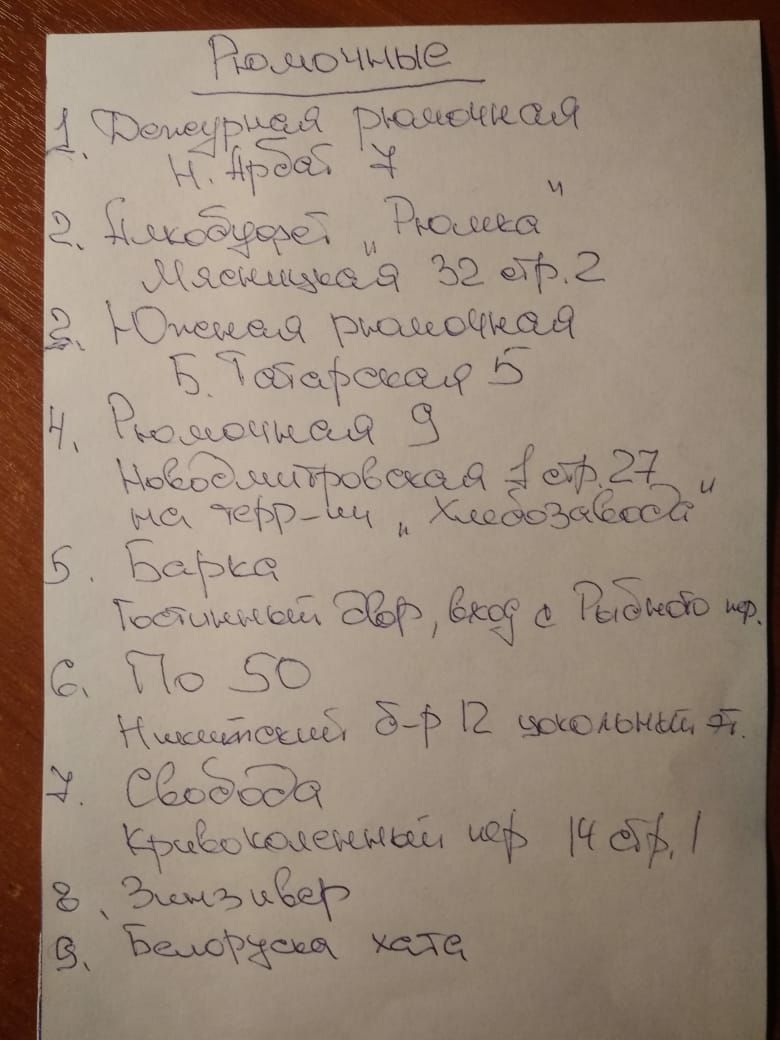 Рюмочные
1. Дежурная рюмочная
Н. Арбат 7
2. Алкобуфет „Рюмка"
Мясницкая 32 стр. 2
3. Южная рюмочная
Б. Татарская 5
4. Рюмочная 9
Новодмитровская 1 стр. 27
на терр-ии „Хлебозавода"
5. Барка
Гостинный двор, вход с Рыбного пер.
6. По 50
Никитский б-р 12 цокольный эт.
7. Свобода
Кривоколенный пер 14 стр. 1
8. Зинзивер
9. Белоруска хата